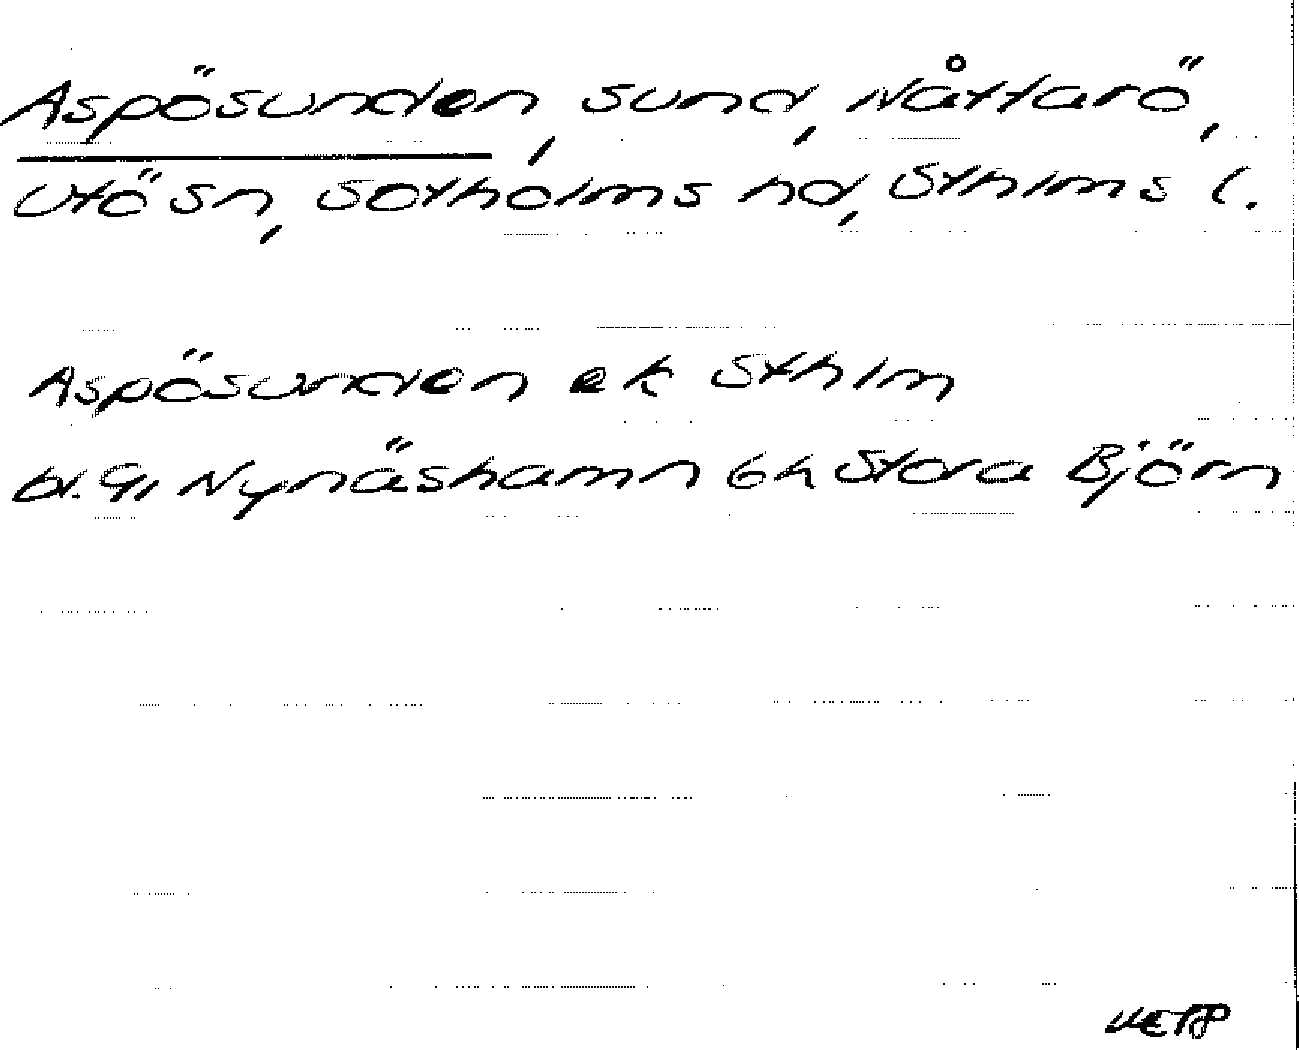 Aspösunden, sund, Nåttarö,
Utö sn, Sotholms hd, Sthlms l.
Aspösunden ek Sthlm
bl. 91 Nynäshamn 6h Stora Björn